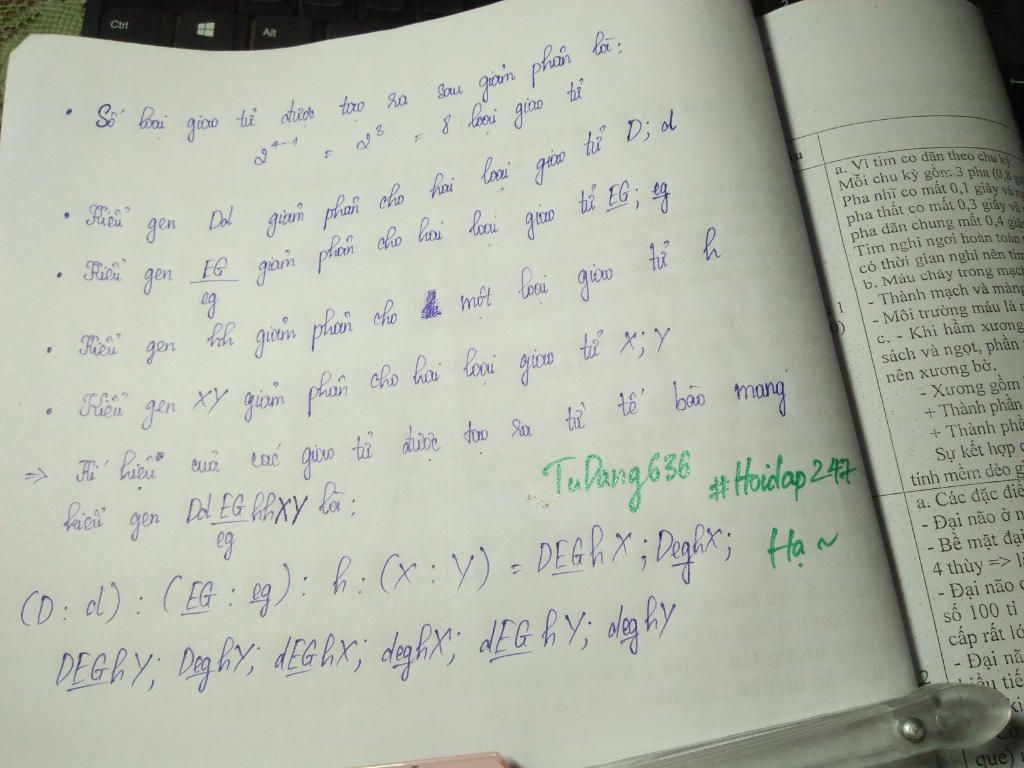 Ctrl
Alt
• Số loại giao tử được tạo ra sau giảm phân là:
2^{4-1} = 2^3 = 8 loại giao tử
• Kiểu gen Dd giảm phân cho hai loại giao tử D; d
• Kiểu gen EG/eg giảm phân cho hai loại giao tử EG; eg
• Kiểu gen hh giảm phân cho một loại giao tử h
• Kiểu gen XY giảm phân cho hai loại giao tử X; Y
=> Kí hiệu của các giao tử được tạo ra từ tế bào mang
kiểu gen Dd EG/eg hhXY là:
(D : d) : (EG : eg) : h : (X : Y) = DEGhX; DeghX;
DEGhY; DeghY; dEGhX; deghX; dEGhY; deghY
TuDang636 #Hoidap247
Hạ ~
a. Vì tim co dãn theo chu kỳ.
Mỗi chu kỳ gồm 3 pha (0,8
Pha nhĩ co mất 0,1 giây và
pha thất co mất 0,3 giây và
pha dãn chung mất 0,4 giây
Tim nghỉ ngơi hoàn toàn
có thời gian nghỉ nên tim
b. Máu chảy trong mạch
- Thành mạch và màng
- Môi trường máu là
c. - Khi hầm xương
sách và ngọt, phần
nên xương bở.
- Xương gồm
+ Thành phần
+ Thành phần
Sự kết hợp
tính mềm dẻo
a. Các đặc điểm
- Đại não ở
- Bề mặt đại
4 thùy =>
- Đại não
số 100 tỉ
cấp rất
- Đại não
2
que)